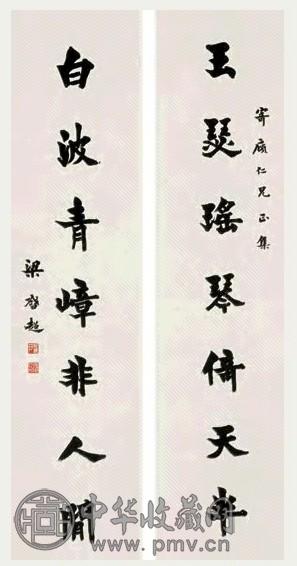 玉瑟瑤琴倚天半
寄仁兄正集
白波青嶂非人間
梁啟超
中华收藏网
www.pmv.cn